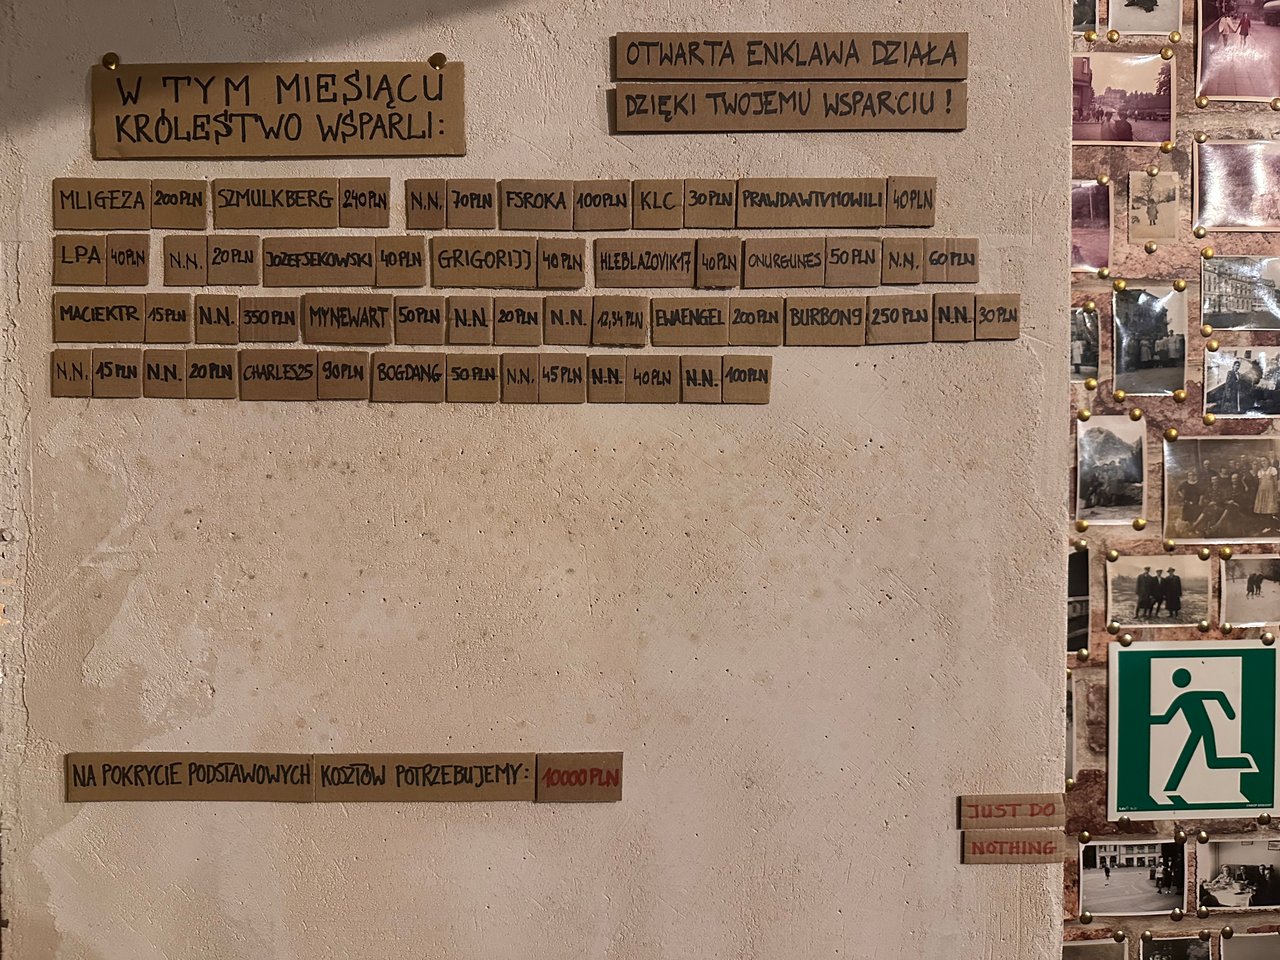 W TYM MIESIĄCU
KRÓLESTWO WSPARLI:
OTWARTA ENKLAWA DZIAŁA
DZIĘKI TWOJEMU WSPARCIU!
MLIGEZA 200PLN SZMULKBERG 240PLN N.N. 70PLN FSROKA 100PLN KLC 30PLN PRAWDAWTVMOWILI 40PLN
LPA 40PLN N.N. 20PLN JOZEFSEKOWSKI 40PLN GRIGORIJJ 40PLN HLEBLAZOVIK17 40PLN ONURGUNES 50PLN N.N. 60PLN
MACIEKTR 15PLN N.N. 350PLN MYNEWART 50PLN N.N. 20PLN N.N. 12,34PLN EWAENGEL 200PLN BURBON9 250PLN N.N. 30PLN
N.N. 15PLN N.N. 20PLN CHARLES25 90PLN BOGDANG 50PLN N.N. 45PLN N.N. 40PLN N.N. 100PLN
NA POKRYCIE PODSTAWOWYCH KOSZTÓW POTRZEBUJEMY: 10000PLN
JUST DO
NOTHING